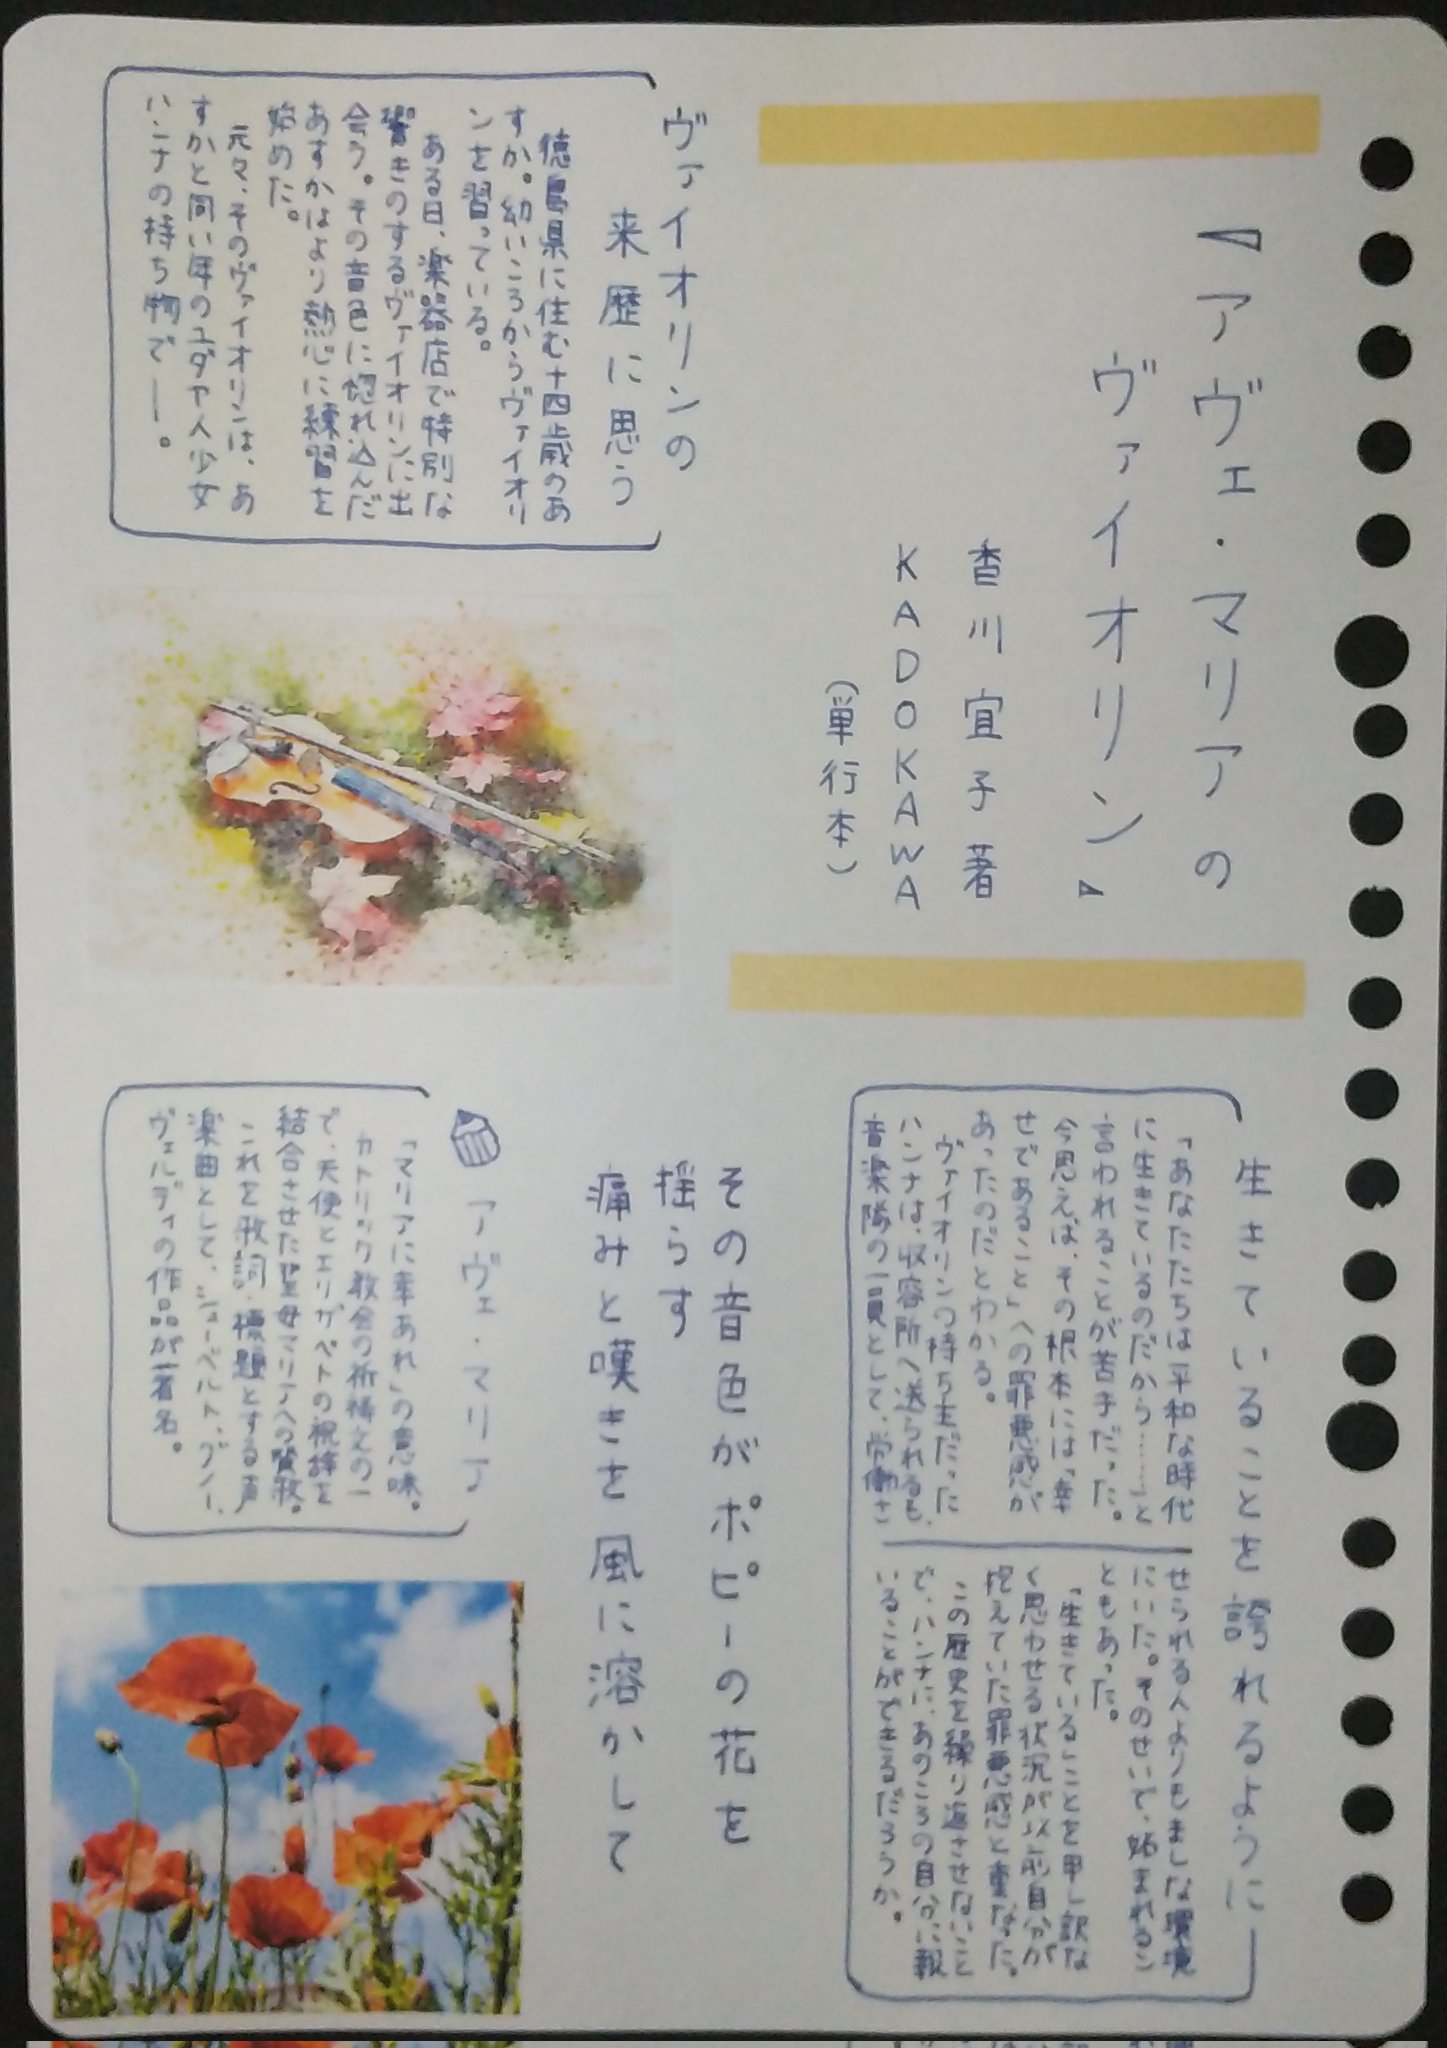 『アヴェ・マリアの
ヴァイオリン』
香川宜子 著
KADOKAWA
(単行本)
ヴァイオリンの
来歴に思う
徳島県に住む十四歳のあ
すか。幼いころからヴァイオリ
ンを習っている。
ある日、楽器店で特別な
響きのするヴァイオリンに出
会う。その音色に惚れ込んだ
あすかはより熱心に練習を
始めた。
元々、そのヴァイオリンは、あ
すかと同い年のユダヤ人少女
ハンナの持ち物で――。
生きていることを誇れるように
「あなたたちは平和な時代
に生きているのだから……」と
言われることが苦手だった。
今思えば、その根本には「幸
せであること」への罪悪感が
あったのだとわかる。
ヴァイオリンの持ち主だった
ハンナは、収容所へ送られるも、
音楽隊の一員として、労働さ
せられる人よりもましな環境
にいた。そのせいで、妬まれるこ
ともあった。
「生きている」ことを申し訳な
く思わせる状況が以前自分が
抱えていた罪悪感と重なった。
この歴史を繰り返させないこと
で、ハンナに、あのころの自分に報
いることができるだろうか。
その音色がポピーの花を
揺らす
痛みと嘆きを風に溶かして
アヴェ・マリア
「マリアに幸あれ」の意味。
カトリック教会の祈祷文の一
で、天使とエリザベトの祝辞を
結合させた聖母マリアへの賛歌。
これを歌詞・標題とする声
楽曲として、シューベルト、グノー、
ヴェルディの作品が著名。